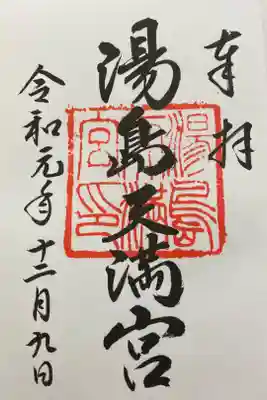 奉拝
湯島天満宮
湯島
天満
宮印
令和元年十二月九日